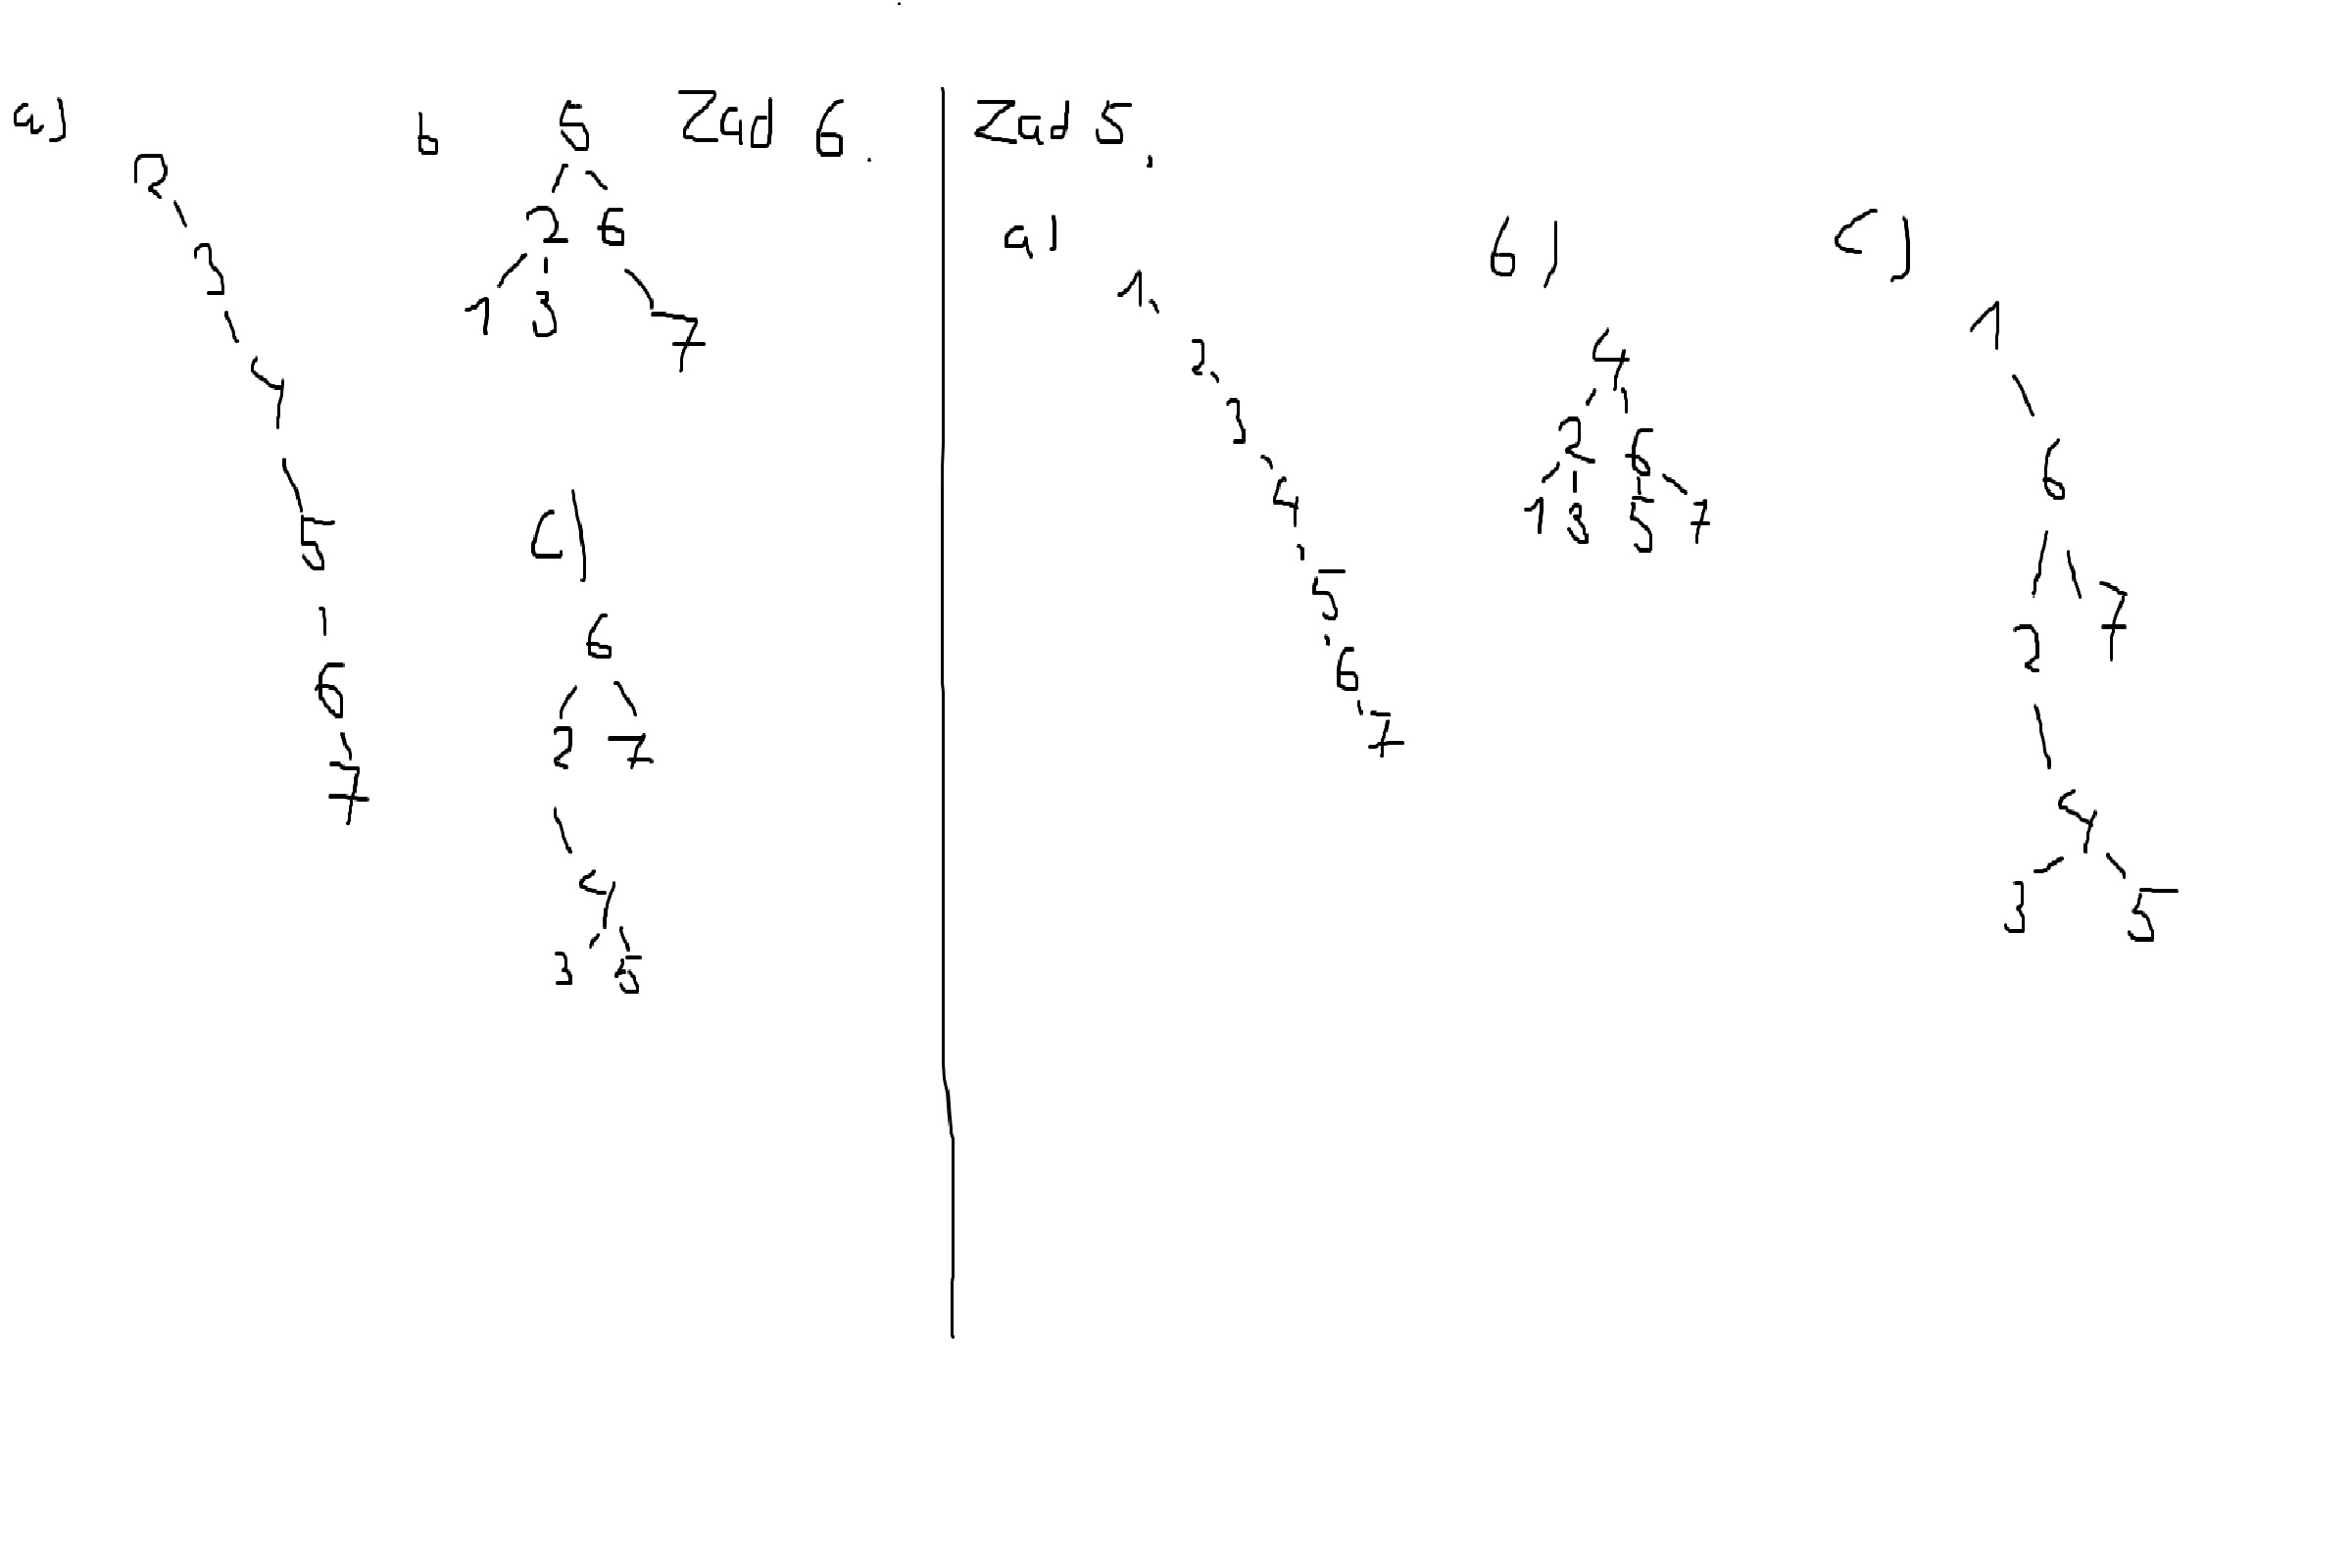 Zad 6.
a)
2
3
4
5
6
7
b
5
2 6
1 3 7
c)
6
2 7
4
3 5
Zad 5.
a)
1
2
3
4
5
6
7
b)
4
2 6
1 3 5 7
c)
1
6
2 7
4
3 5